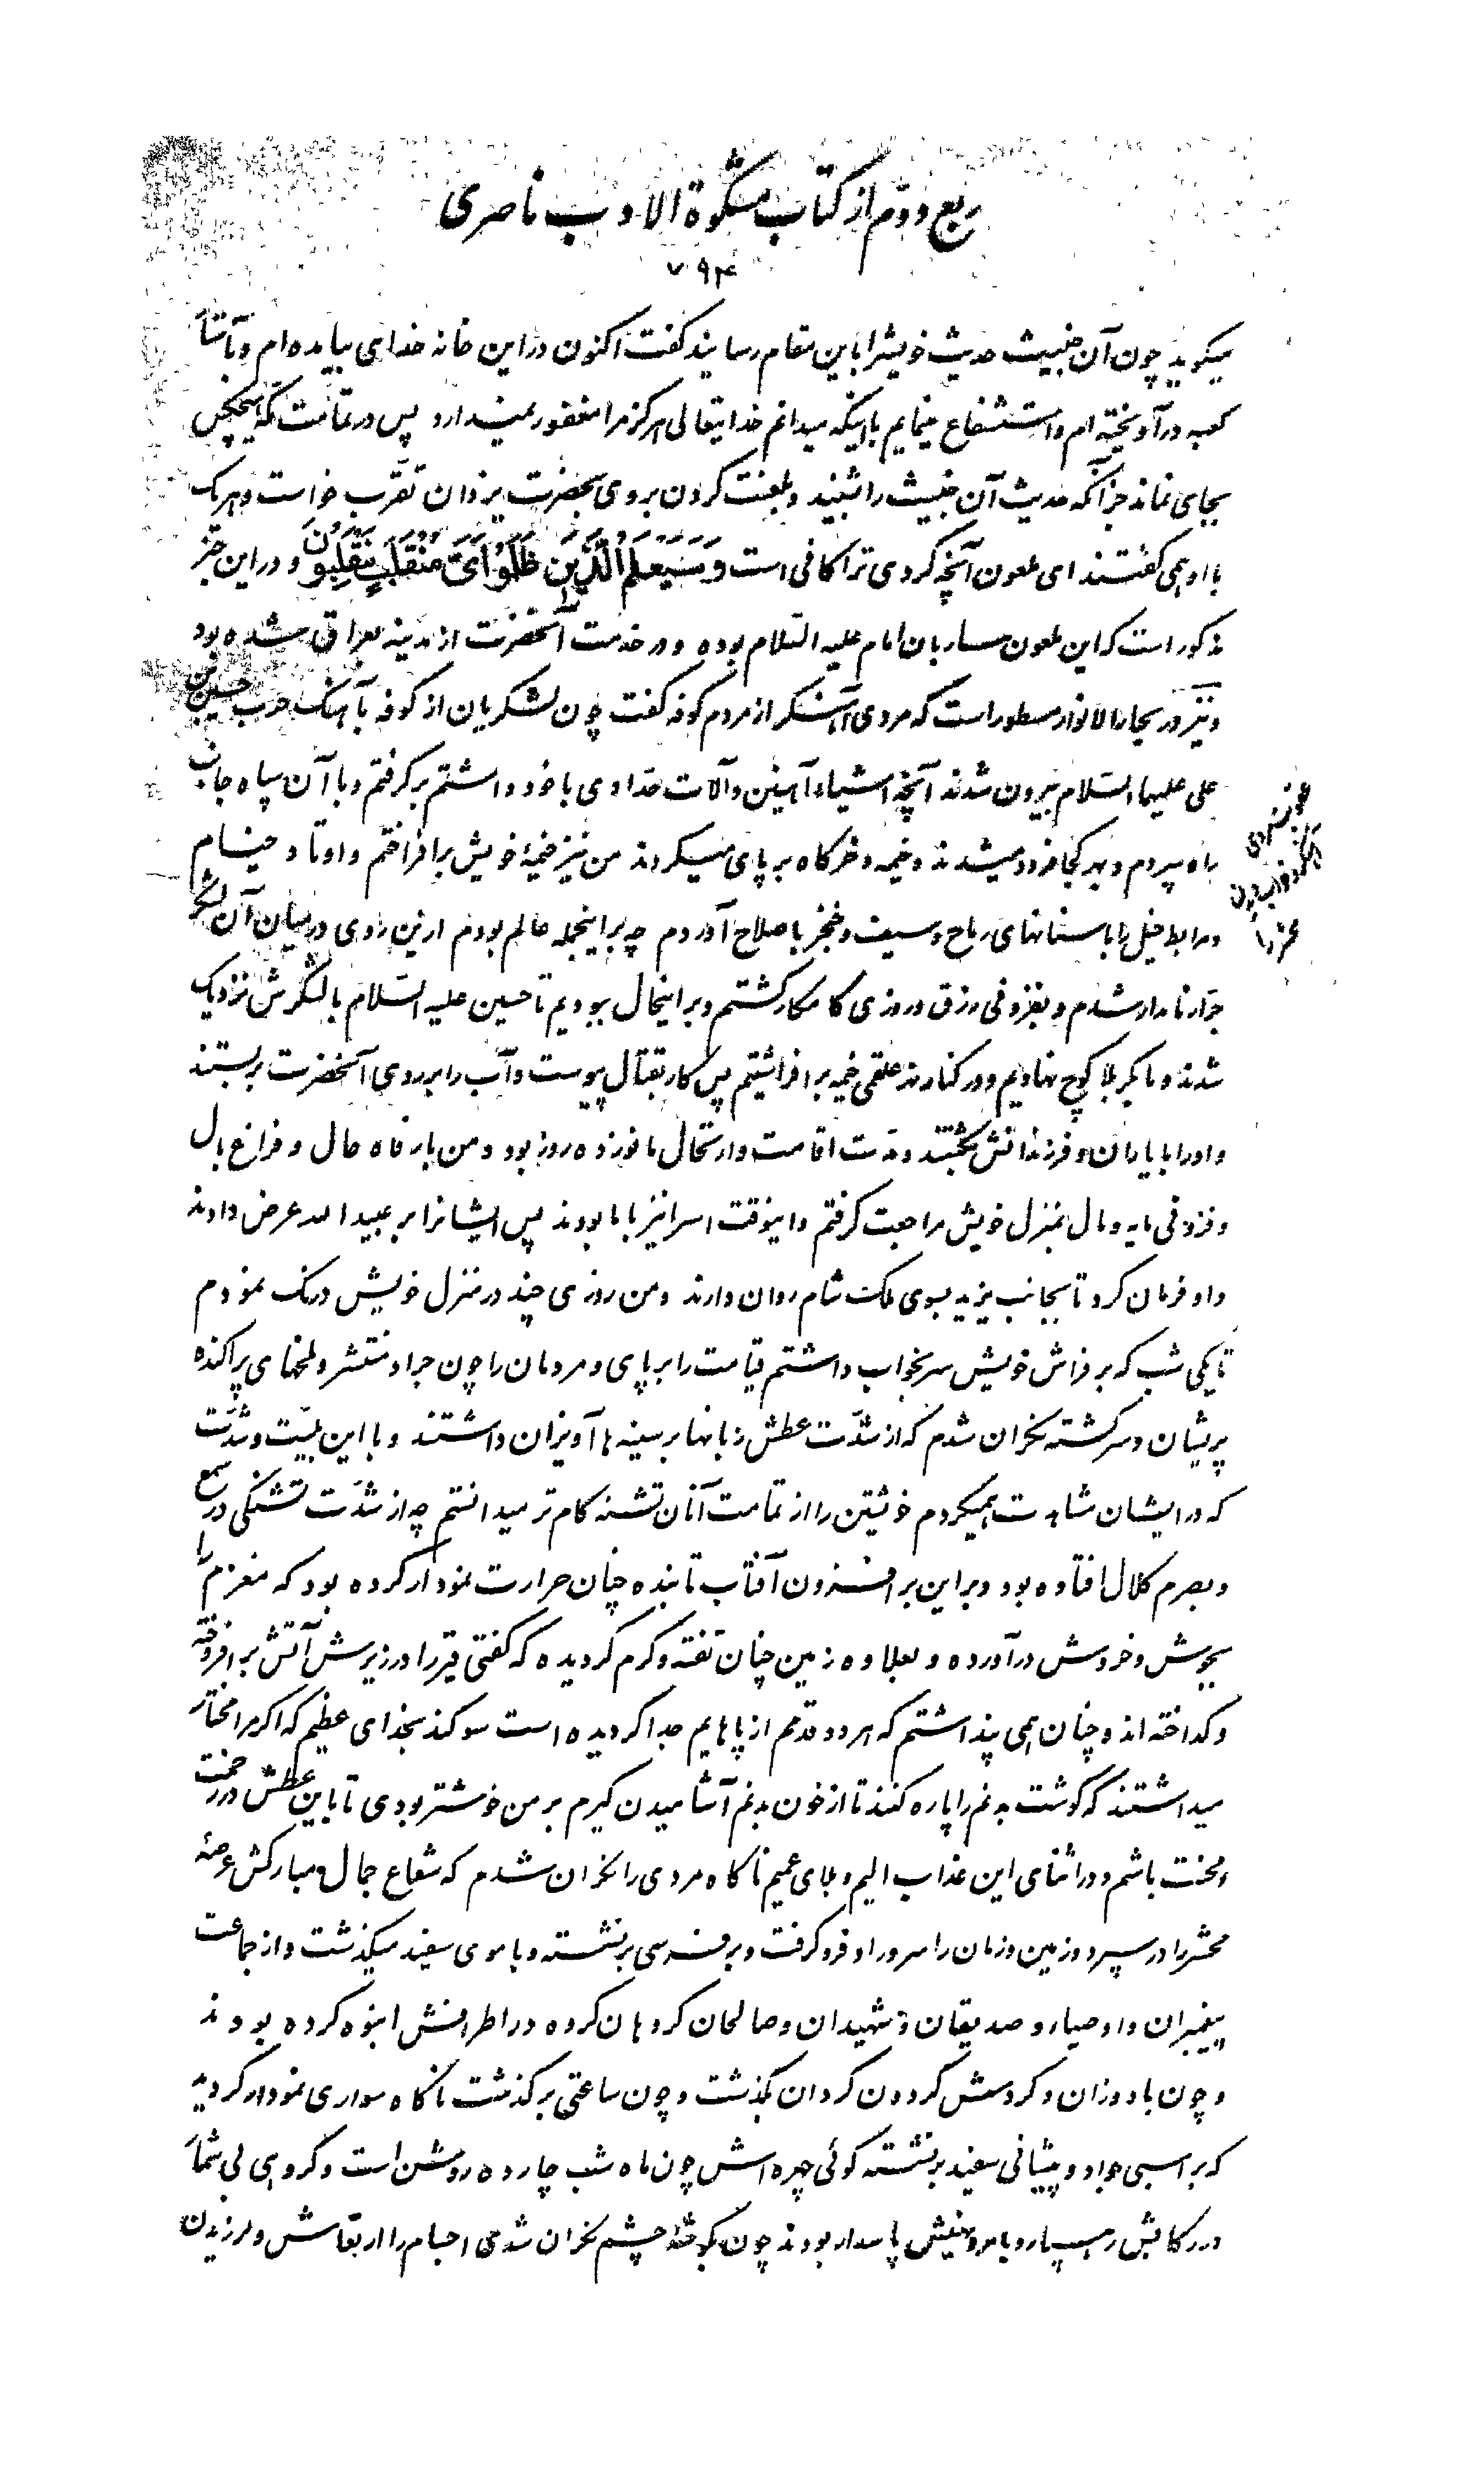 ربع دوّم از کتاب مشکوة الادب ناصری
۷۹۴
میگوید چون آن خبیث حدیث خویشرا باین مقام رسانید گفت اکنون در این خانه خدای بیامده‌ام و باستا
کعبه در آویخته‌ام و استشفاع مینمایم با اینکه میدانم خدایتعالی هرگز مرا مغفور نمیدارد پس در تمامت مکه هیچکس
بجای نماند جز آنکه حدیث آن خبیث را شنید و بلعنت کردن بر وی بحضرت یزدان تقرّب خواست و هر یک
با او همی گفتند ای ملعون آنچه کردی ترا کافی است وَسَیَعْلَمُ الَّذینَ ظَلَمُوا اَیَّ مُنْقَلَبٍ یَنْقَلِبُونَ و در این خبر
مذکور است که این ملعون ساربان امام علیه السّلام بوده و در خدمت آنحضرت از مدینه بعراق شده بود
و نیز در بحار الانوار مسطور است که مردی آهنگر از مردم کوفه گفت چون لشکریان از کوفه بآهنگ حرب حسین بن
علی علیهما السّلام بیرون شدند آنچه اشیاء آهنین و آلات حدّادی با خود داشتم برگرفتم و با آن سپاه جانب
راه سپردم و بهر کجا فرود میشدند و خیمه و خرگاه بر پای میکردند من نیز خیمهٔ خویش برافراختم و اوتاد خیام
و مرابط خیل را با سنانهای رماح و سیف و خنجر باصلاح آوردم چه بر اینجمله عالم بودم ازین روی در میان آن لشکر
جرّار نامدار شدم و بفزونی رزق و روزی کامکار گشتم و بر اینحال ببودیم تا حسین علیه السّلام با لشکرش نزدیک
شدند و ما بکربلا کوچ نهادیم و در کنار نهر علقمی خیمه برافراشتیم پس کار بقتال پیوست و آب را بر روی آنحضرت بربستند
و او را با یاران و فرزندانش بکشتند و مدّت اقامت و ارتحال ما نوزده روز بود و من با رفاه حال و فراغ بال
و فزونی مایه و مال بمنزل خویش مراجعت گرفتم و اینوقت اسرا نیز با ما بودند پس ایشانرا بر عبید الله عرض دادند
و او فرمان کرد تا بجانب یزید بسوی ملک شام روان دارند و من روزی چند در منزل خویش درنک نمودم
تا یکی شب که بر فراش خویش سر بخواب داشتم قیامت را بر پای و مردمان را چون جراد منتشر و ملخهای پراکنده
پریشان و سرگشته نگران شدم که از شدّت عطش زبانها بر سینه‌ها آویزان داشتند و با این بلیّت و شدّت
که در ایشان مشاهدت همیکردم خویشتن را از تمامت آنان تشنه کام‌تر میدانستم چه از شدّت تشنگی در سمع
و بصرم کلال افتاده بود و بر این بر افزون آفتاب تابنده چنان حرارت نمودار کرده بود که مغزم را
بجوش و خروش در آورده و بعلاوه زمین چنان تفته و گرم گردیده که گفتی قیر را در زیرش آتش برافروخته
و گداخته‌اند و چنان همی پنداشتم که هر دو قدمم از پاهایم جدا گردیده است سوگند بخدای عظیم که اگر مرا مختار
میداشتند که گوشت بدنم را پاره کنند تا از خون بدنم آشامیدن گیرم بر من خوشتر بودی تا باین عطش در زحمت
و محنت باشم و در اثنای این عذاب الیم و بلای عمیم ناگاه مردی را نگران شدم که شعاع جمال مبارکش عرصهٔ
محشر را در سپرد و زمین و زمان را سرور او فرو گرفت و بر فرسی برنشسته و با موی سفید میگذشت و از جماعت
پیغمبران و اوصیاء و صدیقان و شهیدان و صالحان گروهان گروه در اطرافش انبوه کرده بودند
و چون باد وزان و گردش گردون گردان بگذشت و چون ساعتی برگذشت ناگاه سواری نمودار گردید
که بر اسبی جواد و پیشانی سفید برنشسته گوئی چهره‌اش چون ماه شب چارده روشن است و گروهی بی شمار
در رکابش رهسپار و بامر و نهیش پاسدار بودند چون بگوشهٔ چشم نگران شدمی اجسام را ارتعاش و لرزیدن